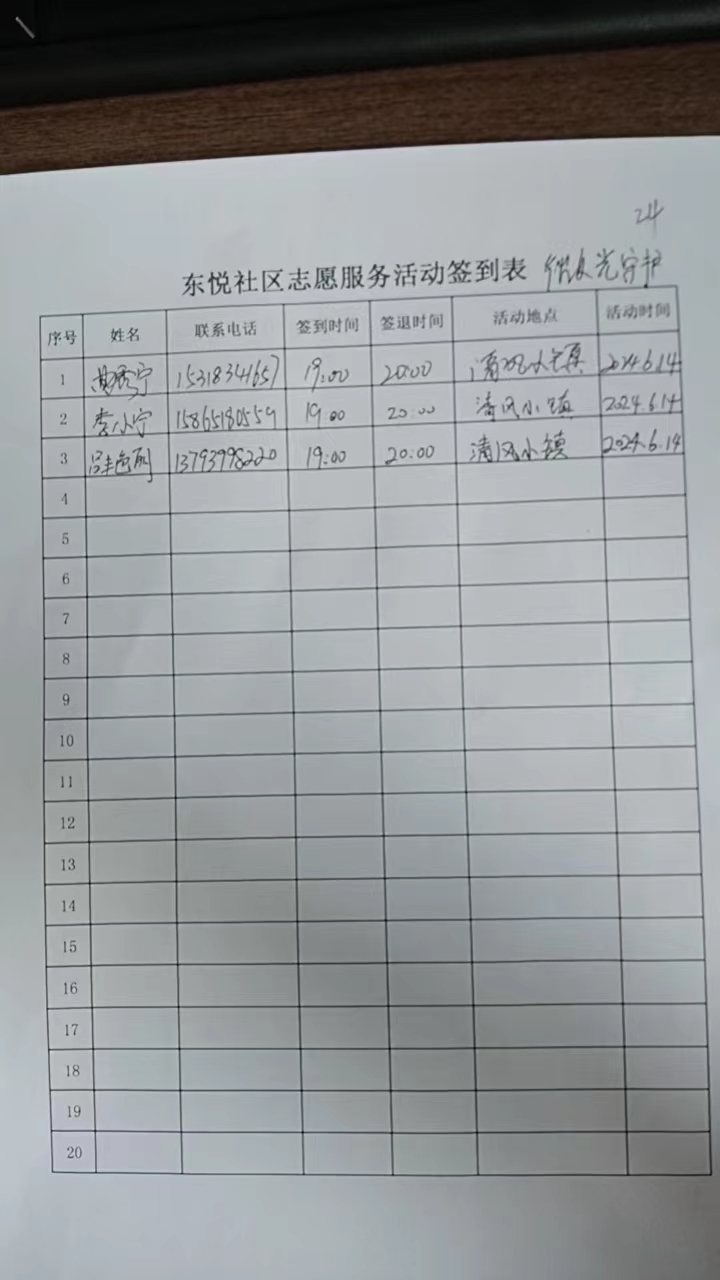 24
东悦社区志愿服务活动签到表 守护
序号 姓名 联系电话 签到时间 签退时间 活动地点 活动时间
1 15318341657 19:00 20:00 清风小镇 2024.6.14
2 李小宁 15865180559 19:00 20:00 清风小镇 2024.6.14
3 13793998220 19:00 20:00 清风小镇 2024.6.14
4
5
6
7
8
9
10
11
12
13
14
15
16
17
18
19
20